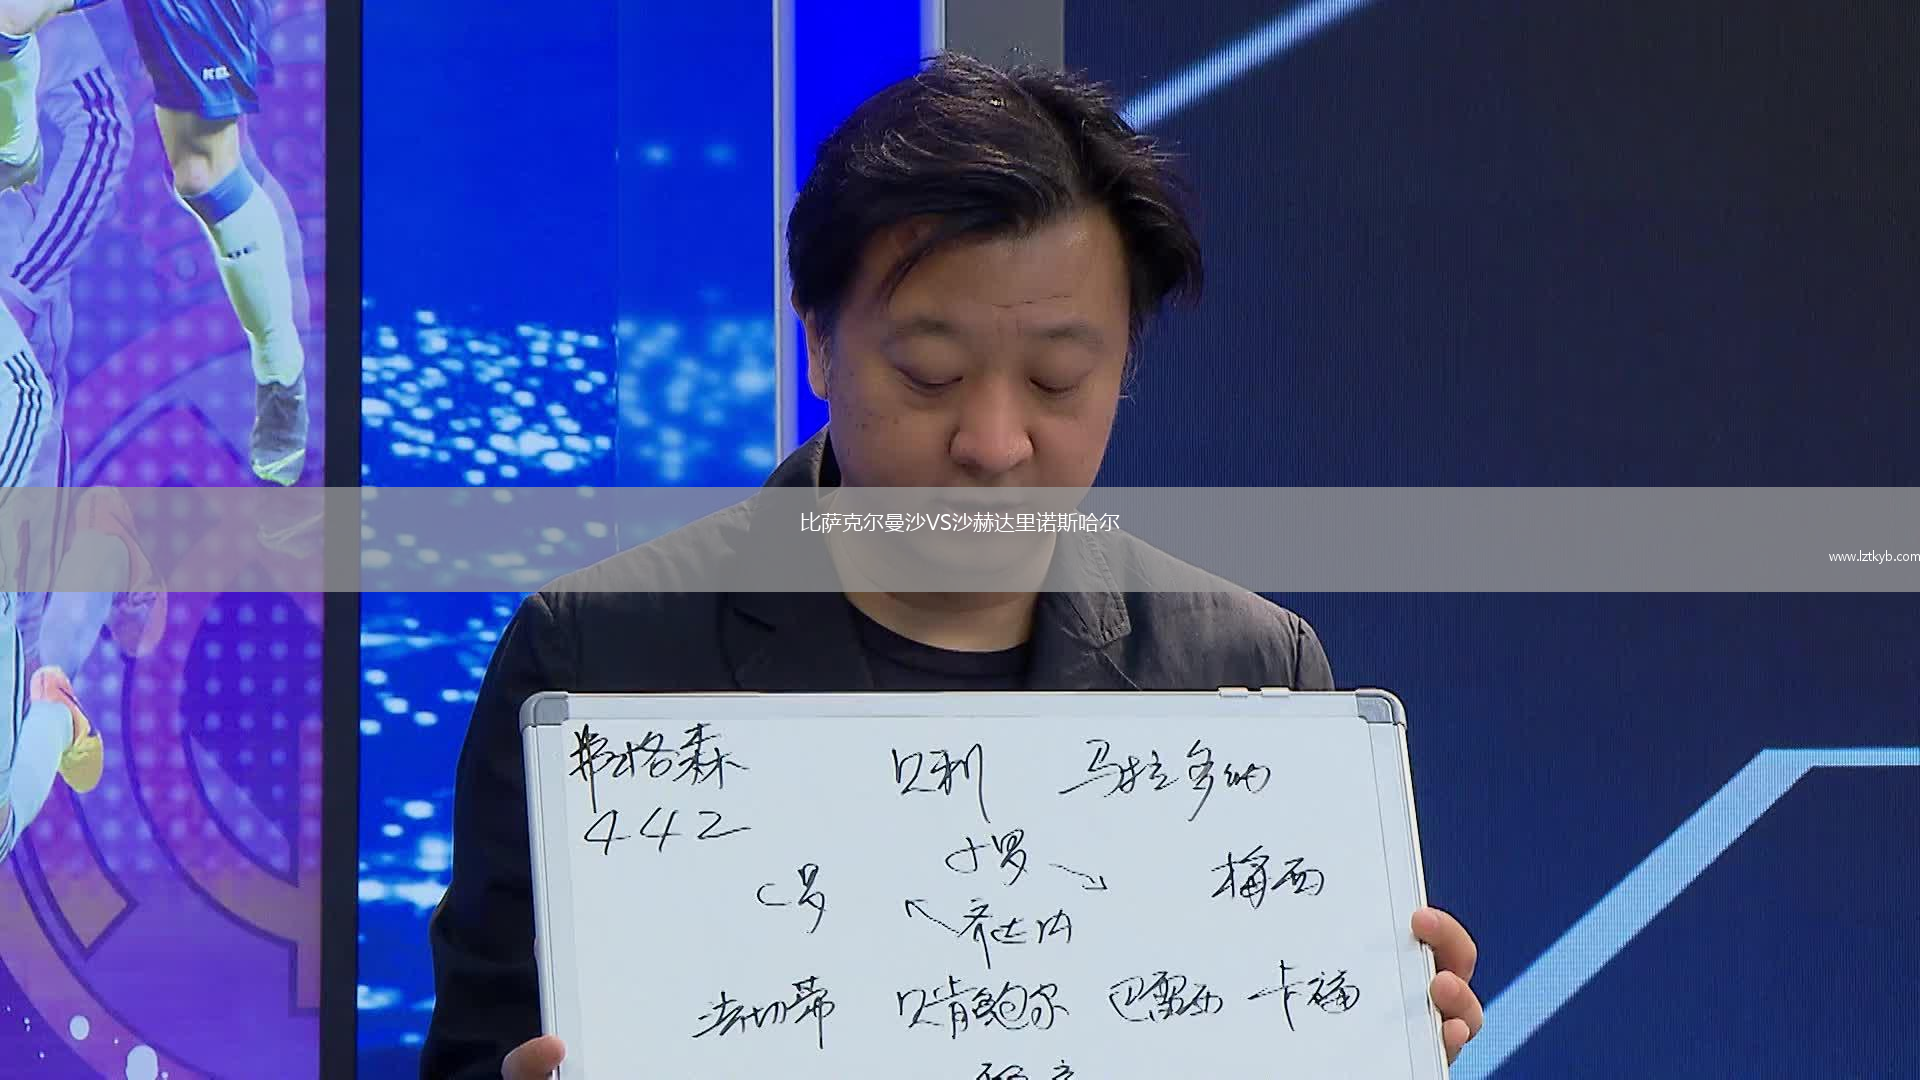 比萨克尔曼沙VS沙赫达里诺斯哈尔
www.lztkyb.com
弗格森 贝利 马拉多纳
442
小罗
C罗 梅西
齐达内
法切蒂 贝肯鲍尔 巴雷西 卡福